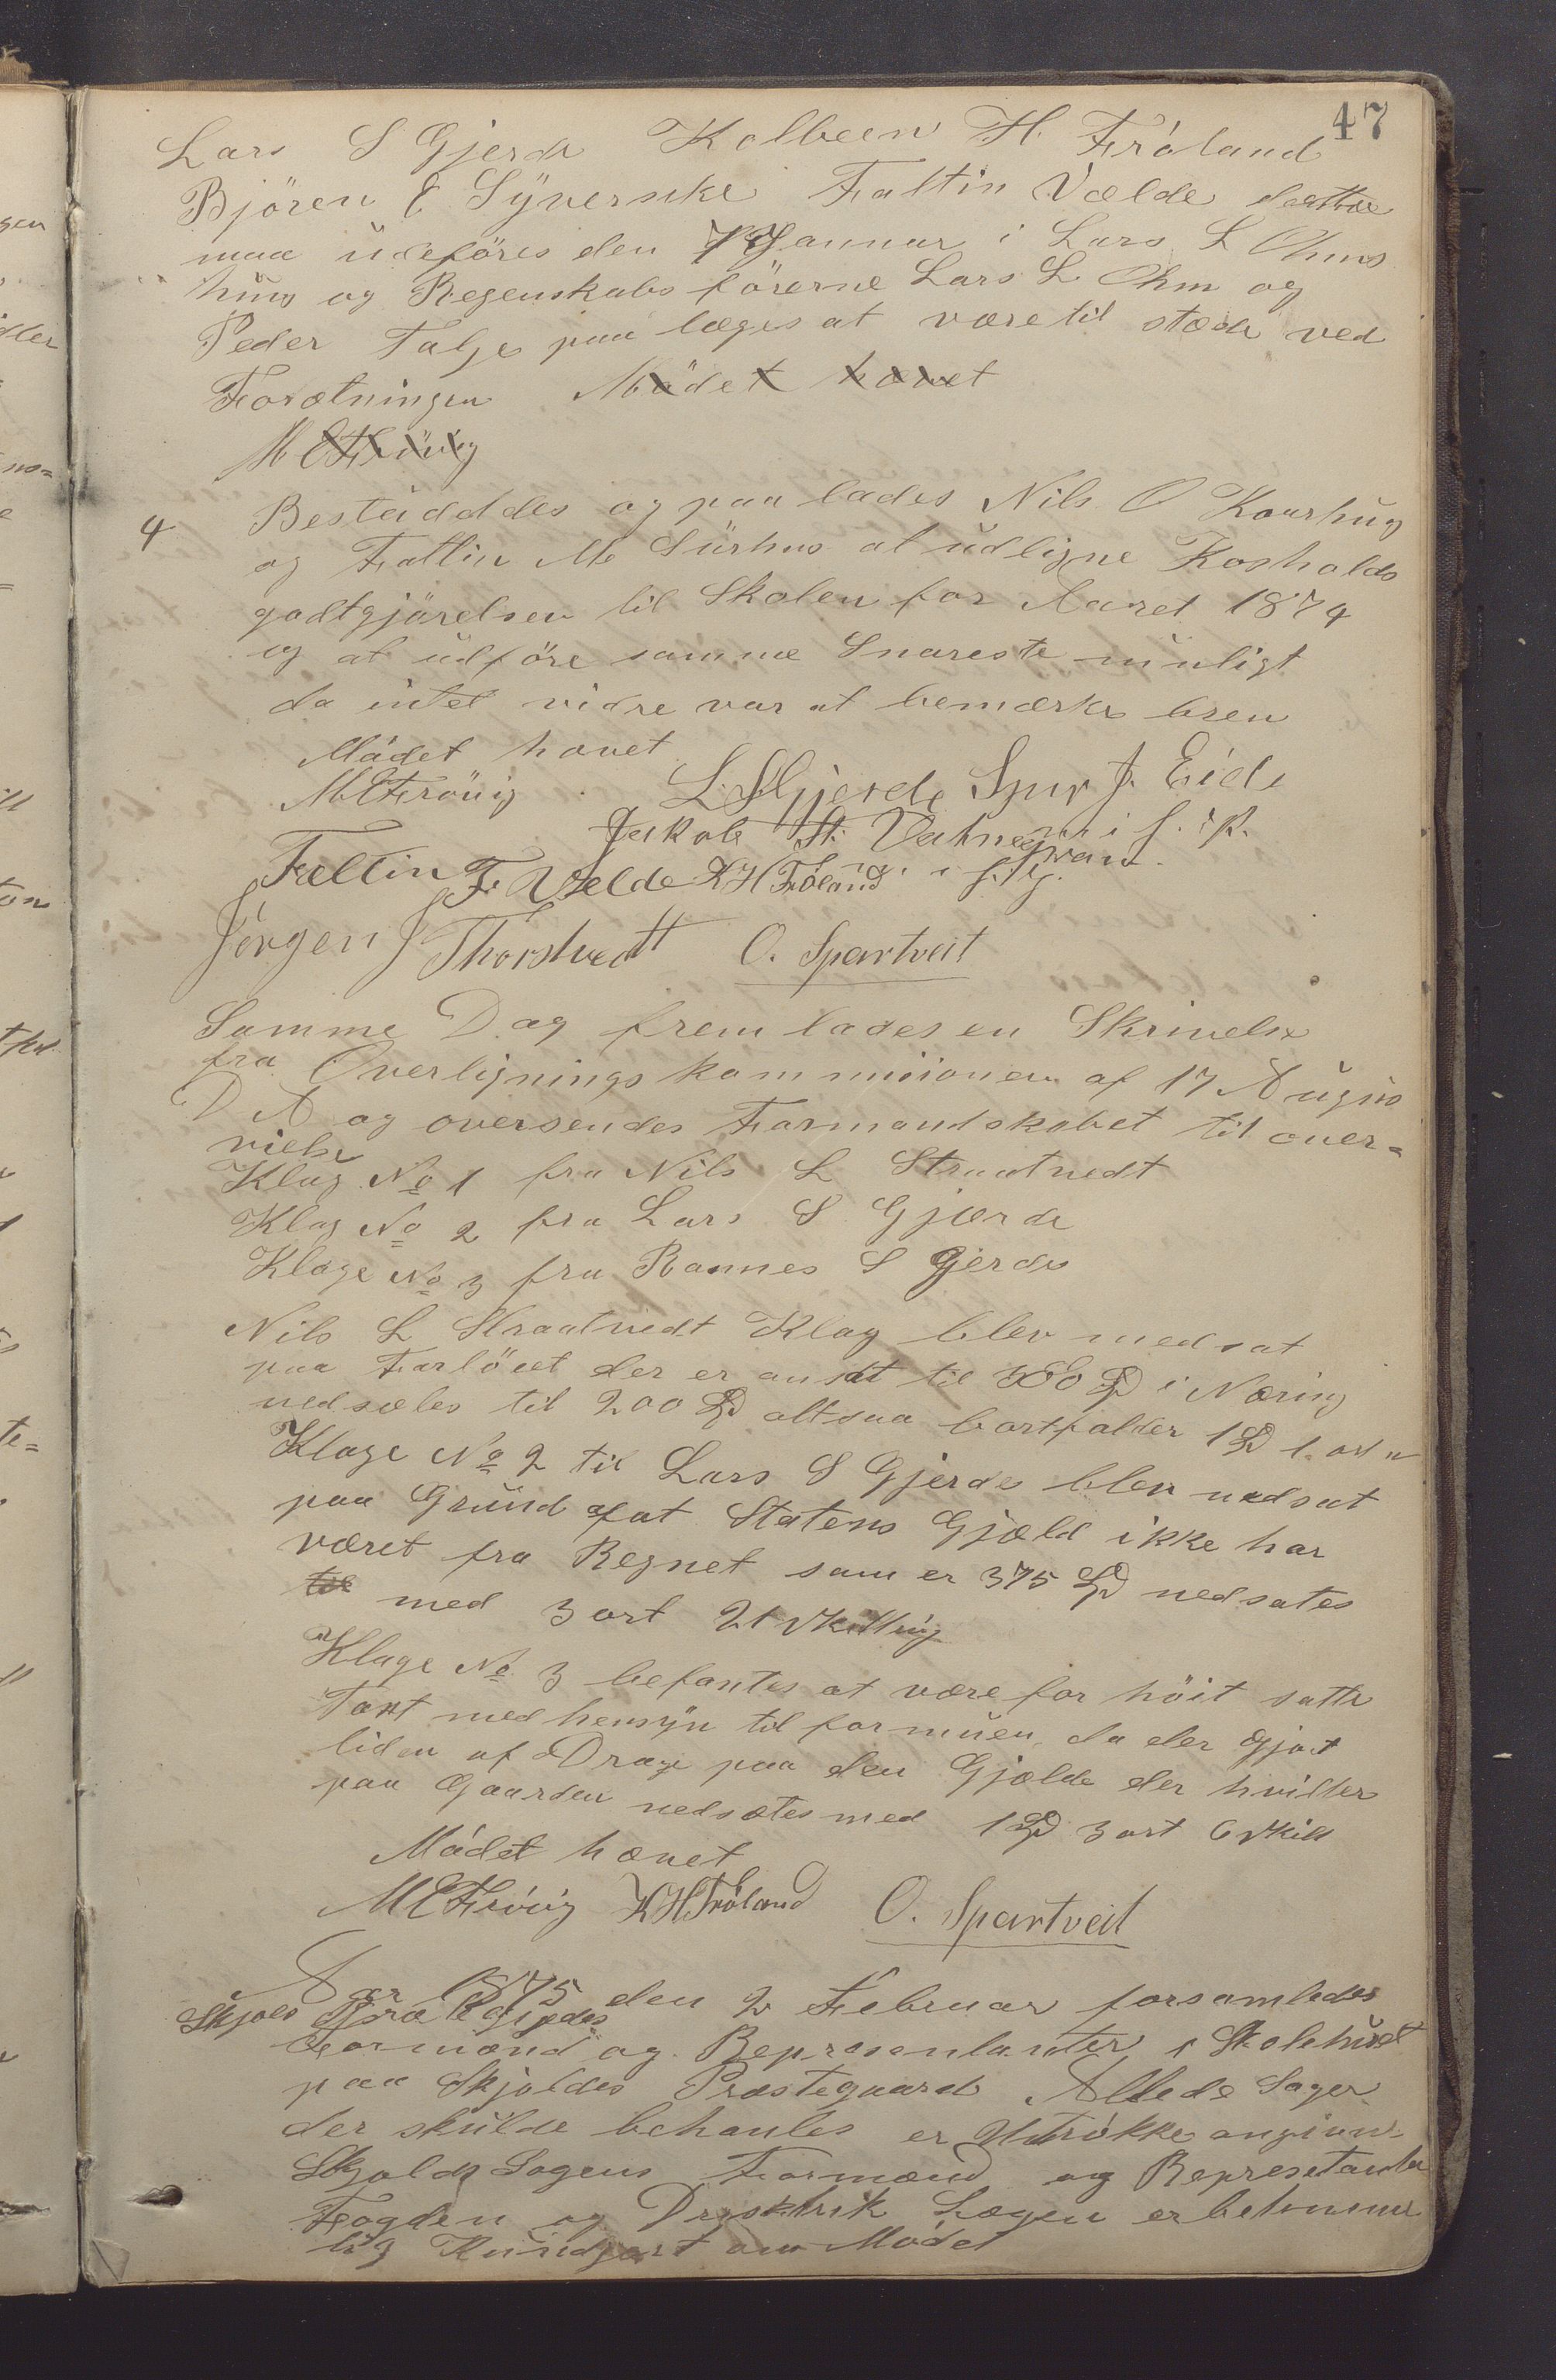 47
Lars S Gjerde Kolbeen H. Fröland
Björen E Synernske Faltin Vælde dættæ
maa udeföres den Januar i Lars L Ohms
hüus og Regenskabs förerne Lars L Ohm og
Peder Falje paa læges at være til stæde ved
Foratningen Mödet hævet
M E Fröviig
4 Bestüdddes og paa lades Nils O Kaarhug
og Fattin M Sürhus at üdligne Kasholds
godtgjörelsen til Skolen for Aaret 1874
og at üdföre samme Snareste münligt
da intet vidre var at bemærke blev
Mödet hævet
M E Fröviig L S Gjerde Syur J. Eide
Jakob St. Vatnedvan i f. i P.
Fæltin F. Velde K H Fröland i f. P.
Jörgen J Thorstvedt O. Spartveit
Samme Dag frem lades en Skrivelse
fra Overlignings kommisionen af 17 Augus
D A og oversendes Formandskabet til over-
vielse
Klag No 1 fra Nils L Straatvedt
Klag No 2 fra Lars S Gjærde
Klage No 3 fra Rannes S Gjerde
Nils L Straatvedt Klag blev nedsat
paa Farlöuet der er ansat til 380 Spd i Næring
nedsæles til 200 Spd altsaa bortfalder 1 Spd 1. ort
Klage No 2 til Lars S Gjerde blev nedsat
paa Grund af at Statens Gjæld ikke har
været fra Regnet som er 375 Spd nedsates
til med 3 ort 21 skilling
Klage No 3 befantes at være for höit satte
Taxt med hensyn til formuen, da der gjort
liden af Drage paa den Gjælde der hviller
paa Gaarden nedsætes med 1 Spd 3 ort 6 skill
Mödet hævet
M E Fröviig K H Fröland O. Spartveit
Aar 1875 den 2 Februar forsamledes
Skjold
Formænd og Represenlanter i Skolehuset
paa Skjoldes Præstegaard Allede Sager
der skulde behanles er Udtrökke angivn
Skjolds Sogens Formænd og Represetanter
Fogden og Drysktrik Lægen er betimme
lig Kundgort om Mödet